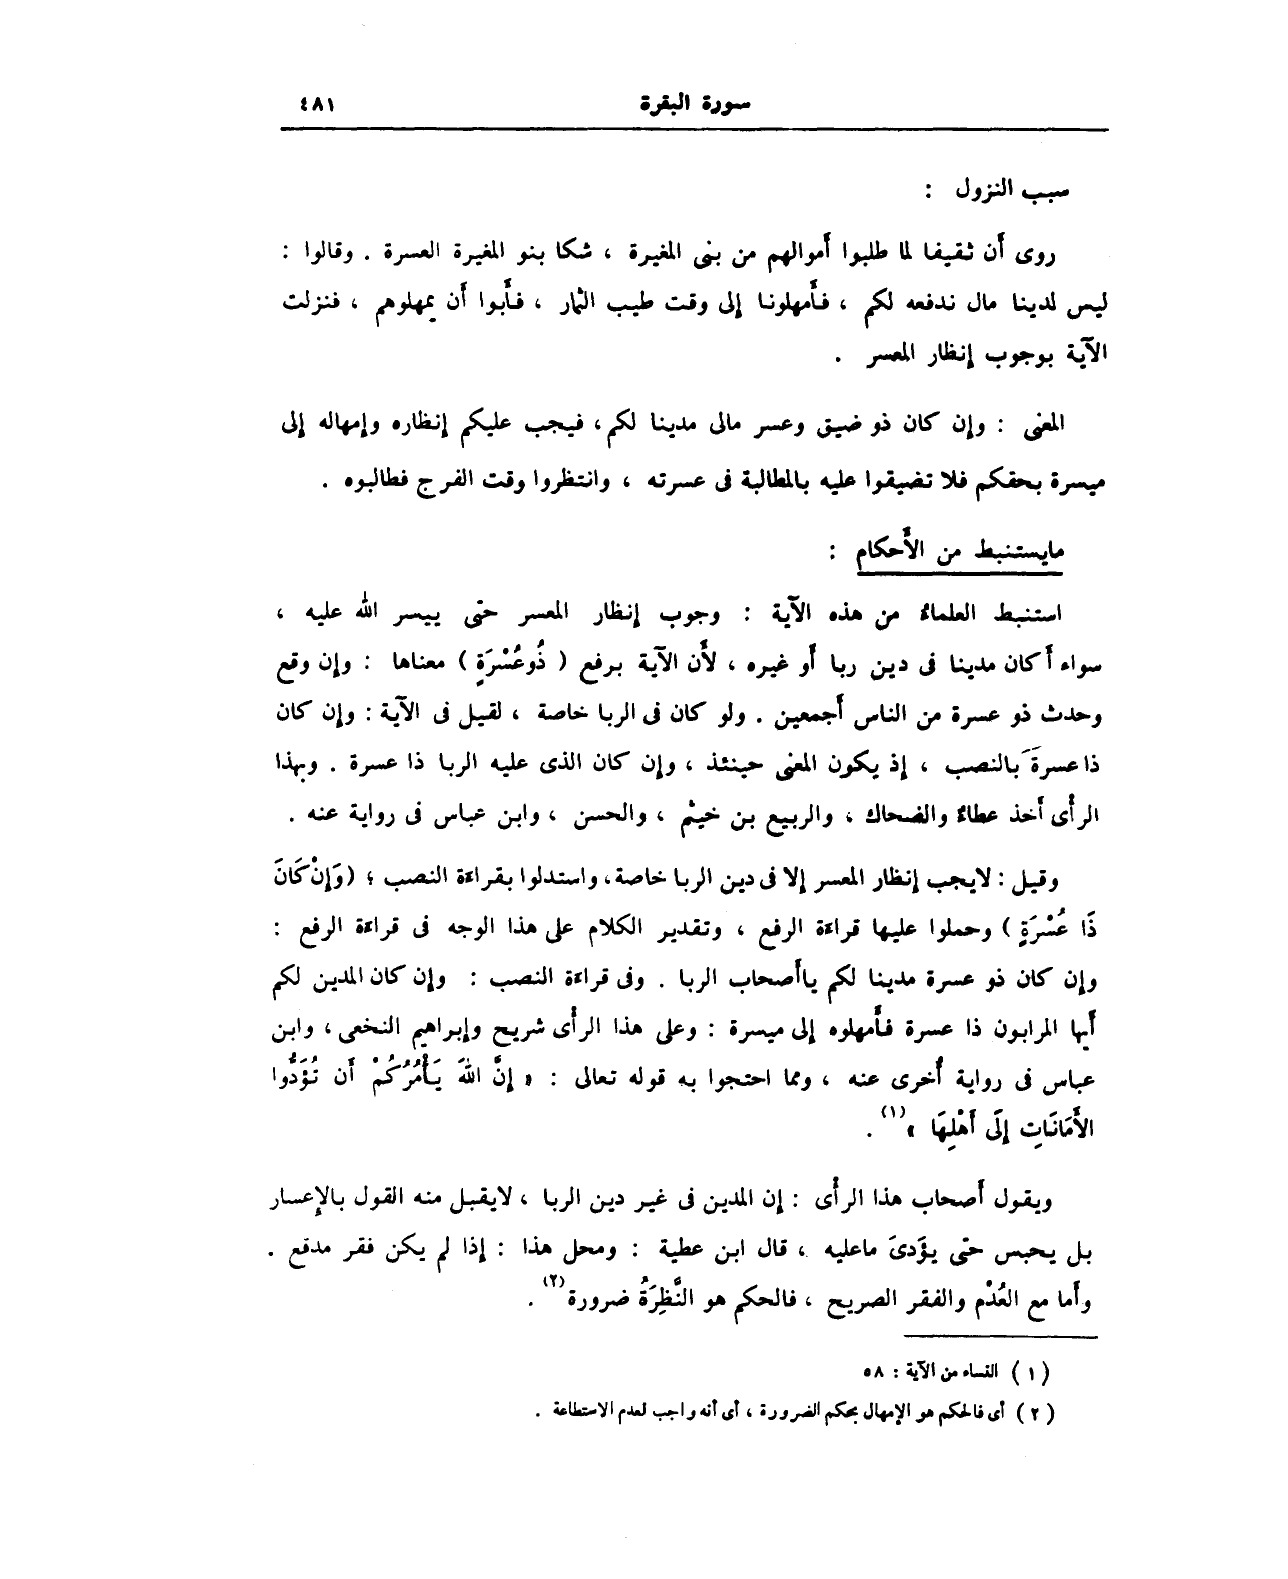 سورة البقرة ٤٨١
سبب النزول :
روى أَن ثقيفا لما طلبوا أَموالهم من بنى المغيرة ، شكا بنو المغيرة العسرة . وقالوا :
ليس لدينا مال ندفعه لكم ، فأَمهلونا إلى وقت طيب الثمار ، فأَبوا أَن يمهلوهم ، فنزلت
الآية بوجوب إنظار المعسر .
المعنى : وإن كان ذو ضيق وعسر مالى مدينا لكم، فيجب عليكم إنظاره وإمهاله إلى
ميسرة بحقكم فلا تضيقوا عليه بالمطالبة فى عسرته ، وانتظروا وقت الفرج فطالبوه .
مايستنبط من الأَحكام :
استنبط العلماءُ من هذه الآية : وجوب إنظار المعسر حتى ييسر الله عليه ،
سواء أَكان مدينا فى دين ربا أَو غيره ، لأَن الآية برفع ( ذُوعُسْرَةٍ ) معناها : وإن وقع
وحدث ذو عسرة من الناس أَجمعين . ولو كان فى الربا خاصة ، لقيل فى الآية : وإن كان
ذا عسرةَ بالنصب ، إذ يكون المعنى حينئذ ، وإن كان الذى عليه الربا ذا عسرة . وبهذا
الرأْى أَخذ عطاءُ والضحاك ، والربيع بن خيثم ، والحسن ، وابن عباس فى رواية عنه .
وقيل : لايجب إنظار المعسر إلا فى دين الربا خاصة، واستدلوا بقراءة النصب ؛ (وَإِنْ كَانَ
ذَا عُسْرَةٍ ) وحملوا عليها قراءة الرفع ، وتقدير الكلام على هذا الوجه فى قراءة الرفع :
وإن كان ذو عسرة مدينا لكم ياأَصحاب الربا . وفى قراءة النصب : وإن كان المدين لكم
أَيها المرابون ذا عسرة فأَمهلوه إلى ميسرة : وعلى هذا الرأْى شريح وإبراهيم النخعى ، وابن
عباس فى رواية أُخرى عنه ، ومما احتجوا به قوله تعالى : « إِنَّ اللهَ يَأْمُرُكُمْ أَن تُؤَدُّوا
الأَمَانَاتِ إِلَى أَهْلِهَا »(١) .
ويقول أَصحاب هذا الرأْى : إن المدين فى غير دين الربا ، لايقبل منه القول بالإعسار
بل يحبس حتى يؤَدىَ ماعليه ، قال ابن عطية : ومحل هذا : إذا لم يكن فقر مدقع .
وأَما مع العُدْم والفقر الصريح ، فالحكم هو النَّظِرَةُ ضرورة(٢) .
( ١ ) النساء من الآية : ٥٨
( ٢ ) أى فالحكم هو الإمهال بحكم الضرورة ، أى أنه واجب لعدم الاستطاعة .